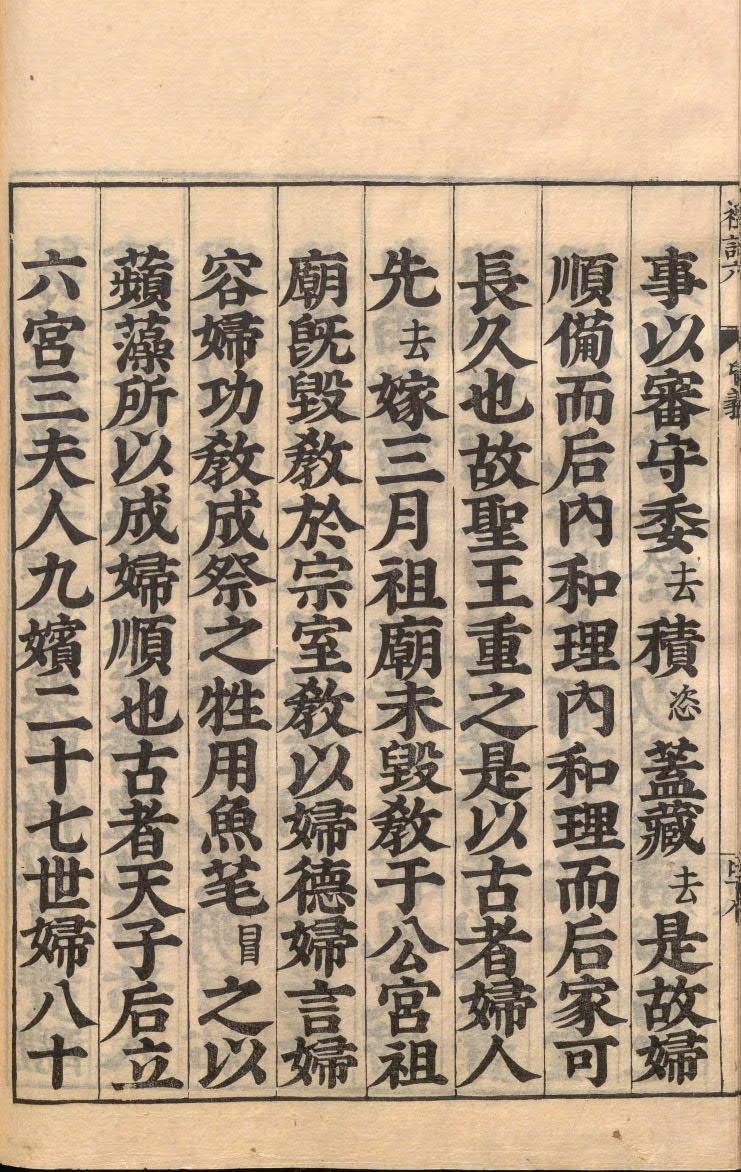 事以審守委去積恣蓋藏去是故婦
順備而后內和理內和理而后家可
長久也故聖王重之是以古者婦人
先去嫁三月祖廟未毀教于公宮祖
廟既毀教於宗室教以婦德婦言婦
容婦功教成祭之牲用魚芼冒之以
蘋藻所以成婦順也古者天子后立
六宮三夫人九嬪二十七世婦八十